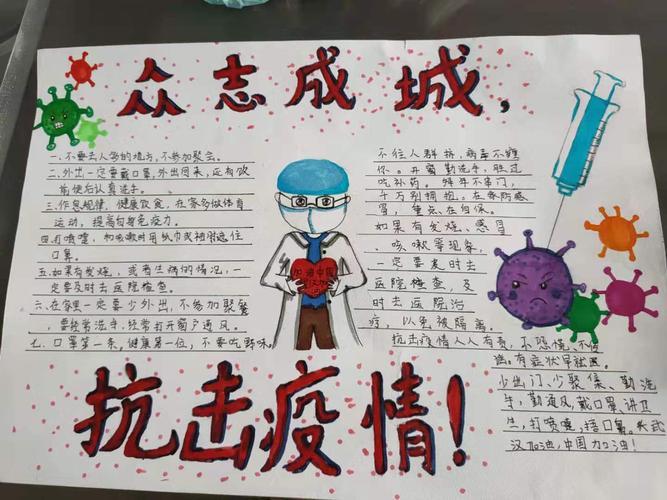 众志成城，
一、不要去人多的地方，不参加聚会。
二、外出一定要戴口罩，外出回来，还有饭
前便后认真洗手。
三、作息规律，健康饮食，在家多做体育
运动，提高自身免疫力。
四、打喷嚏，和咳嗽时用纸巾或袖遮住
口鼻。
五、如果有发烧，或者生病的情况，一
定要及时去医院检查。
六、在家里一定要少外出，不参加聚餐，
要经常洗手，经常打开窗户通风。
七、口罩第一条，健康第一位，不要吃野味。
加油中国
武汉加油
不往人群挤，病毒不缠
你。开窗勤洗手，胜过
吃补药。拜年不串门，
千万别拥抱。在家防感
冒，重点在自保。
如果有发烧、感冒
、咳嗽等现象，
一定要及时去
医院检查，及
时去医院治
疗，以免被隔离。
抗击疫情人人有责，不恐慌，不信
谣。有症状早就医。
少出门，少聚集、勤洗
手，勤通风，戴口罩，讲卫
生，打喷嚏，捂口鼻。
武
汉加油，中国加油！
抗击疫情！